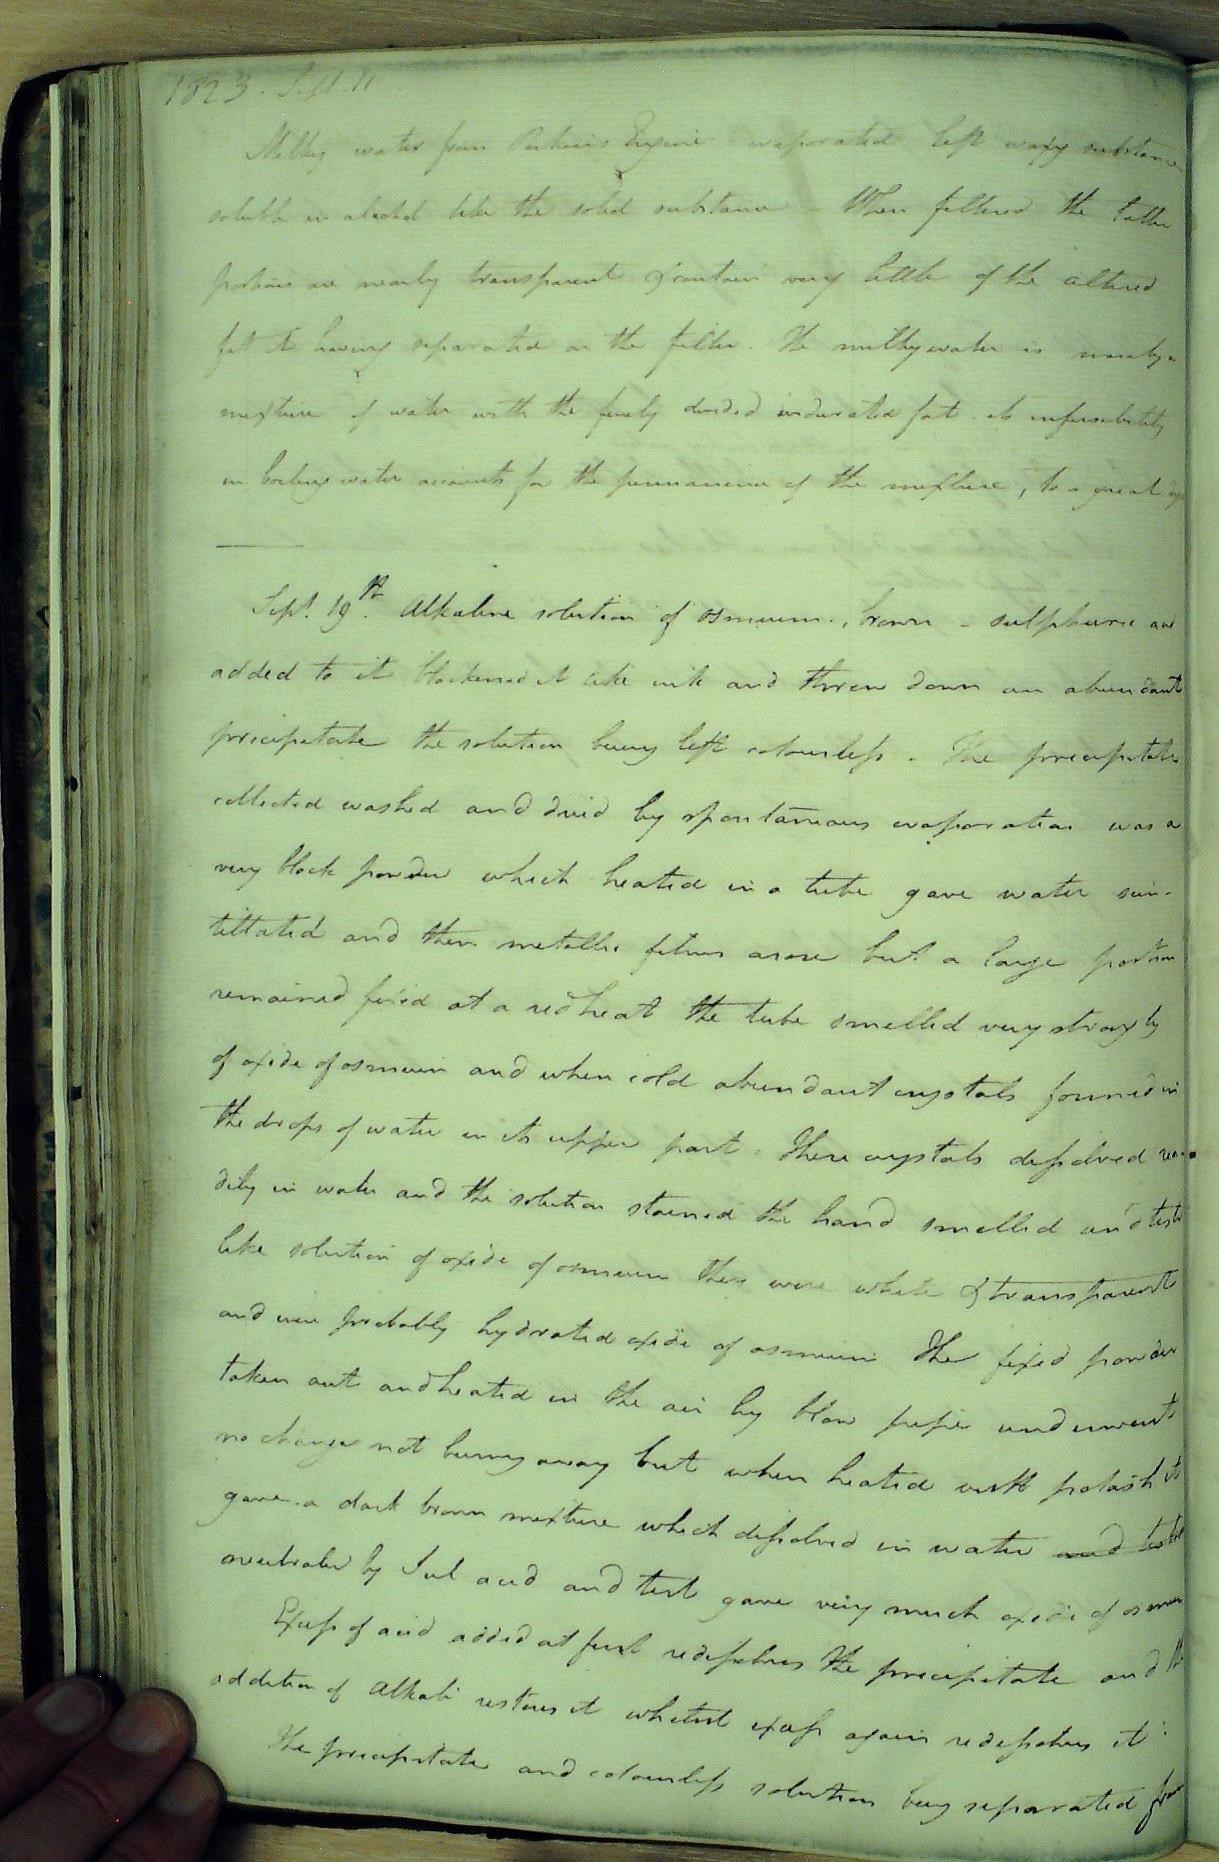 1823. Sept. 11
Milky water from Perkins Engine evaporated left waxy substance
soluble in alcohol like the solid substance - When filtered the latter
portions are nearly transparent & contain very little of the altered
fat it having separated on the filter. The milky water is merely a
mixture of water with the finely divided indurated fat. its infusibility
in boiling water accounts for the permanence of the mixture, to a great
Sept. 19th. Alkaline solution of osmium., brown - sulphuric acid
added to it blackened it like ink and threw down an abundant
precipitate the solution being left colourless. The precipitate
collected washed and dried by spontaneous evaporation was a
very black powder which heated in a tube gave water scin-
tillated and then metallic films arose but a large portion
remained fixed at a red heat the tube smelled very strongly
of oxide of osmium and when cold abundant crystals formed in
the drops of water in its upper part. These crystals dissolved rea-
dily in water and the solution stained the hand smelled and tasted
like solution of oxide of osmium they were white & transparent
and were probably hydrated oxide of osmium The fixed powder
taken out and heated in the air by blow pipe underwent
no change not burning away but when heated with potash it
gave a dark brown mixture which dissolved in water and tested
neutralized by Sul acid and test gave very much oxide of osmium
Excess of acid added at first redissolves the precipitate and the
addition of Alkali restores it whilst excess again redissolves it.
The precipitate and colourless solution being separated from